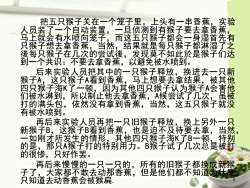 把五只猴子关在一个笼子里，上头有一串香蕉，实验
人员装了一个自动装置，一旦侦测到有猴子要去拿香蕉，
马上就会有水喷向笼子，而这五只猴子都会一身湿首先有
只猴子想去拿香蕉，当然，结果就是每只猴子都淋湿了之
後每只猴子在几次的尝试后，发现莫不如此於是猴子们达
到一个共识：不要去拿香蕉，以避免被水喷到。
后来实验人员把其中的一只猴子释放，换进去一只新
猴子A，这只猴子A看到香蕉，马上想要去拿结果，被其他
四只猴子海K了一顿，因为其他四只猴子认为猴子A会害他
们被水淋到，所以制止他去拿香蕉，A倘尝试了几次，虽被
打的满头包，依然没有拿到香蕉，当然，这五只猴子就没
有被水喷到。
再后来实验人员再把一只旧猴子释放，换上另外一只
新猴子B，这猴子B看到香蕉，也是迫不及待要去拿，当然，
一如刚才所发生的情形，其他四只猴子海K了B一顿，特别
的是，那只A猴子打的特别用力。B猴子试了几次总是被打
的很惨，只好作罢。
再后来慢慢的一只一只的，所有的旧猴子都换成新猴
子了，大家都不敢去动那香蕉，但是他们都不知道为什么，
只知道去动香蕉会被猴扁